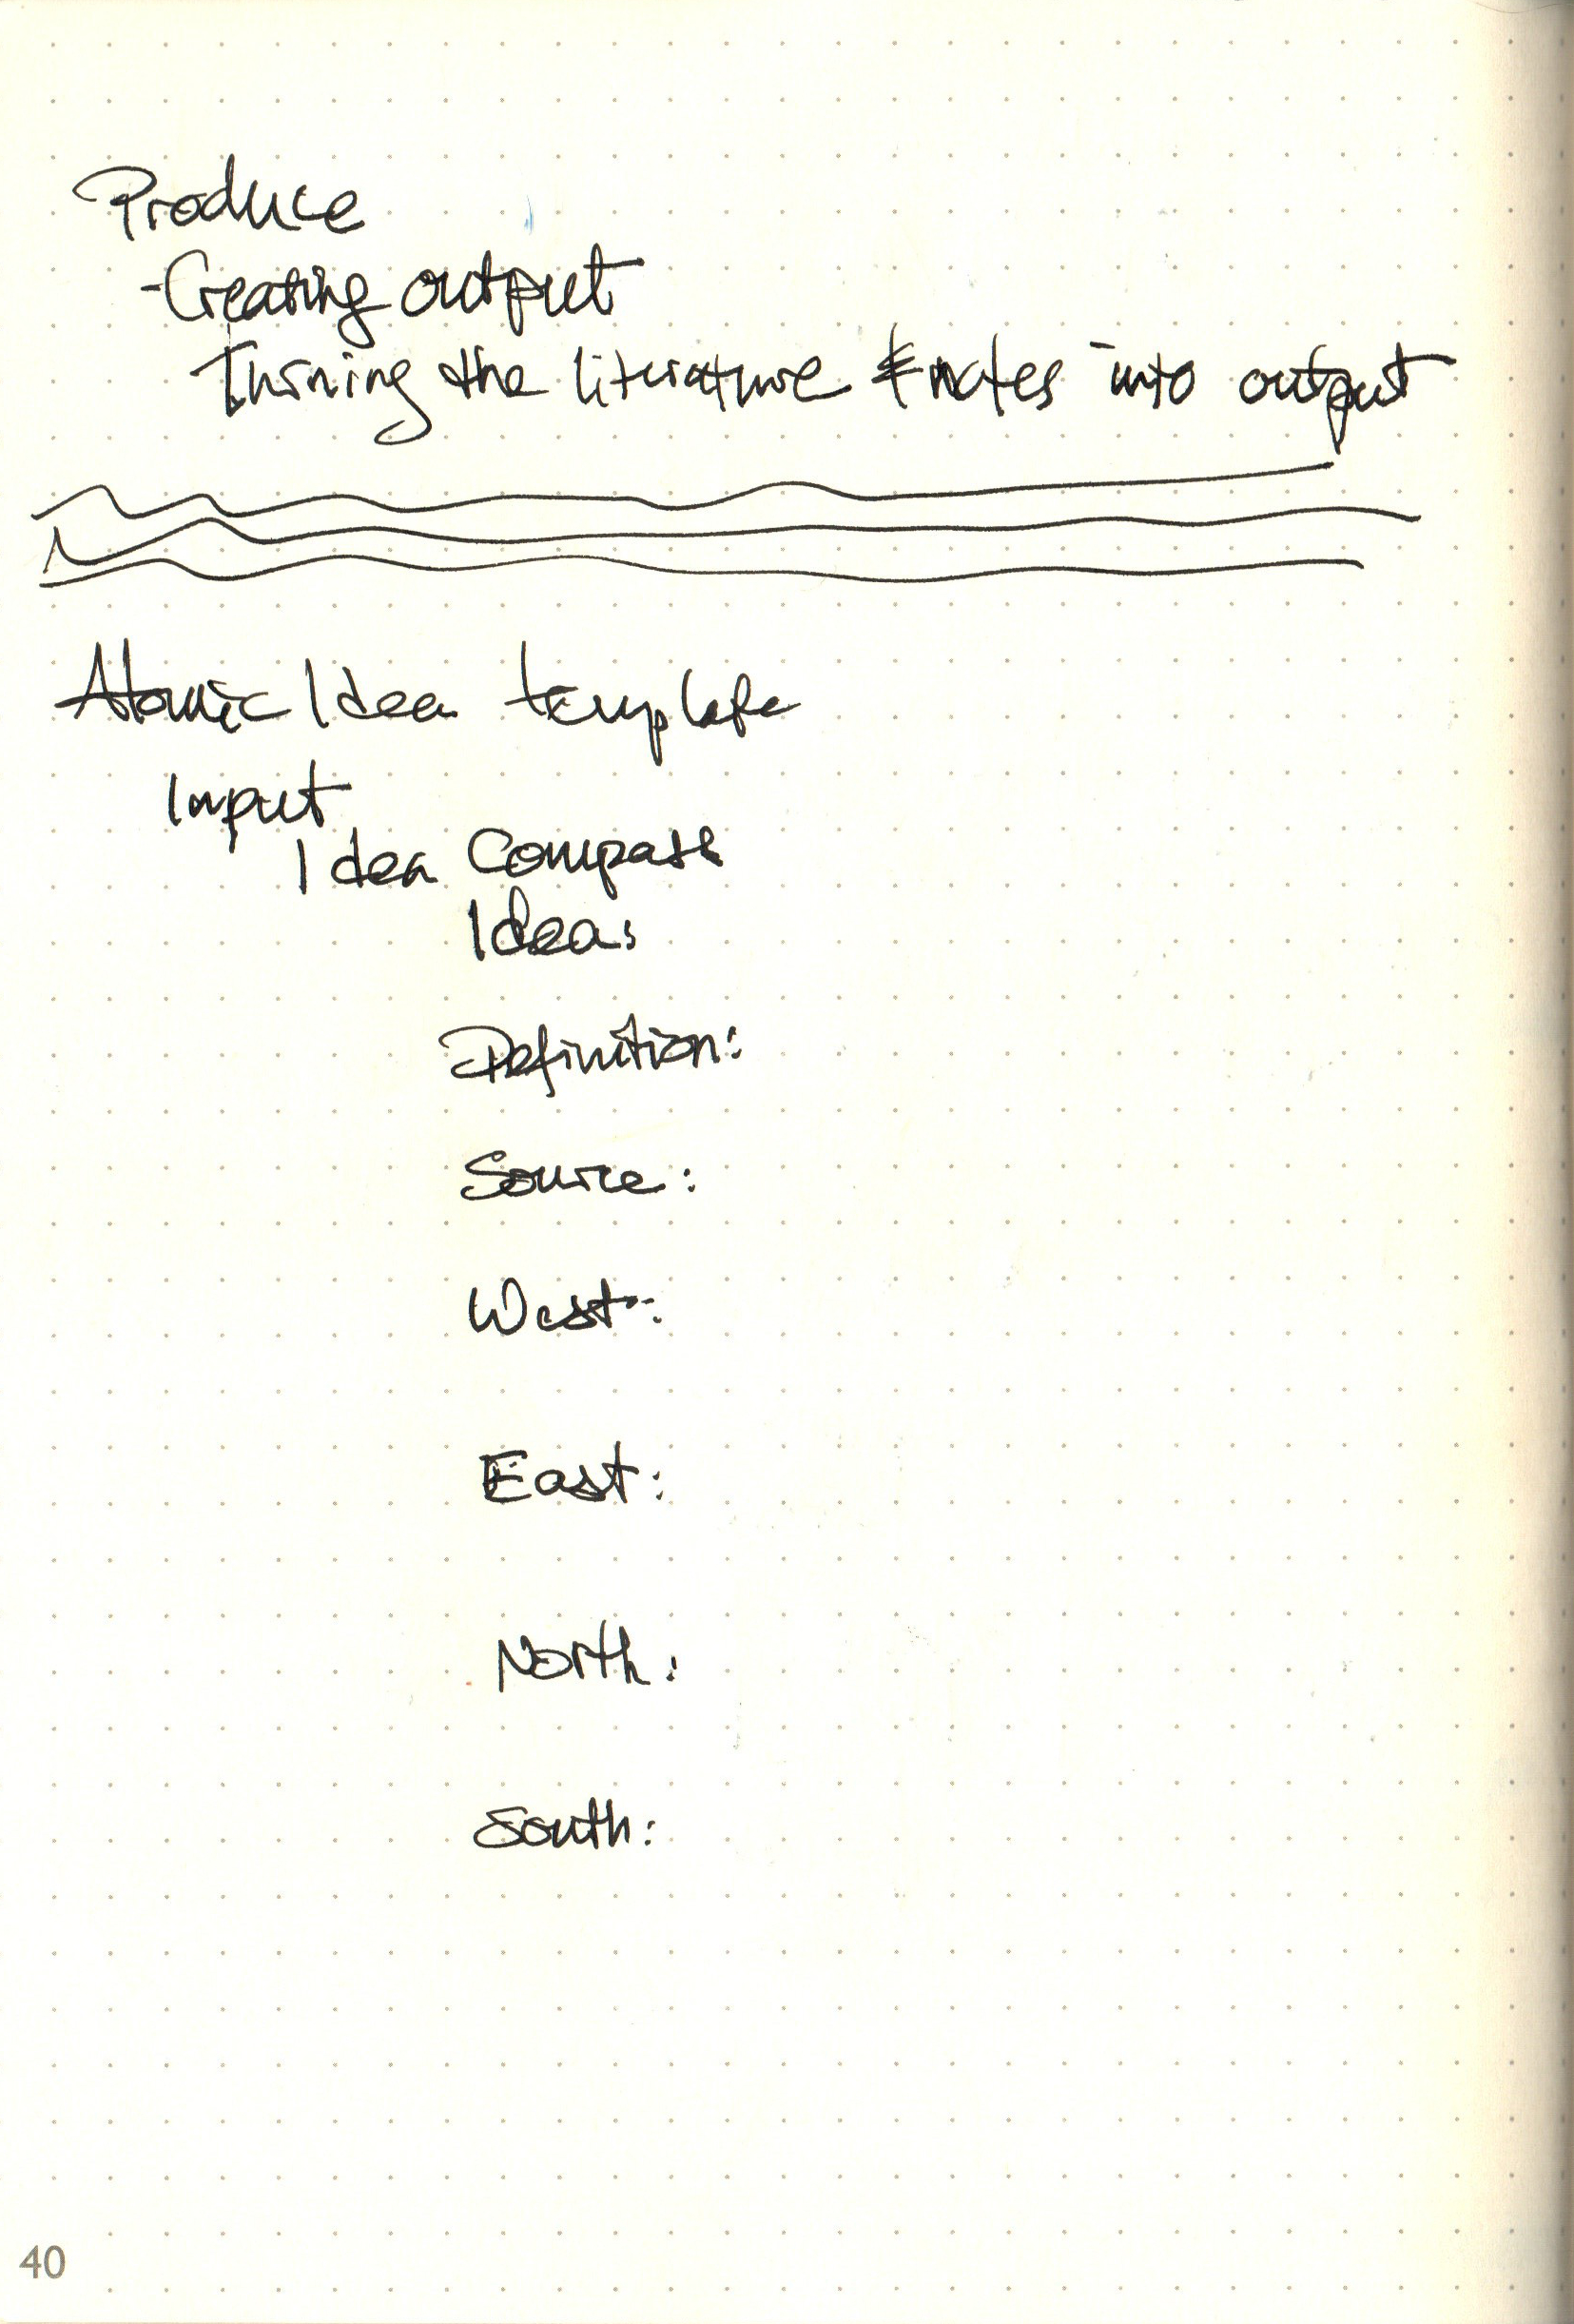 Produce
-Creating output
Turning the literature & notes into output
Atomic Idea template
Input
Idea Compass
Idea:
Definition:
Source:
West:
East:
North:
South:
40